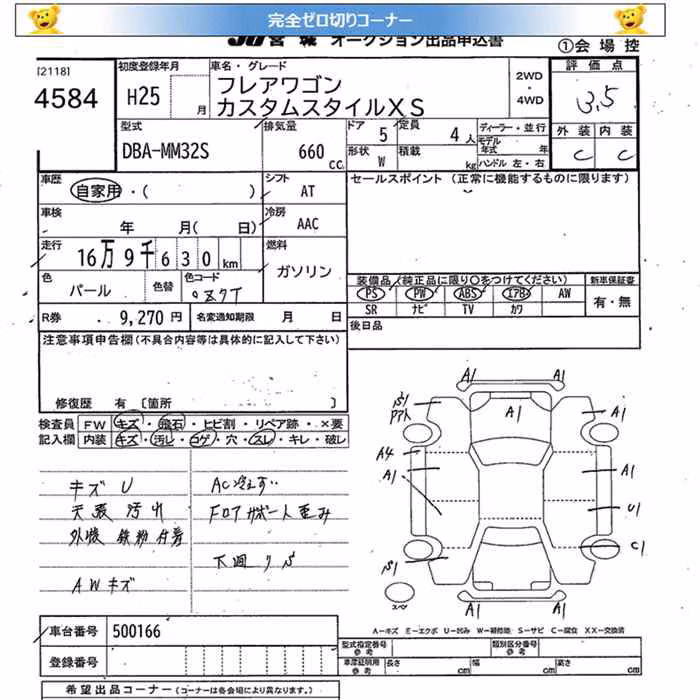 完全ゼロ切りコーナー
JU宮城 オークション出品申込書
①会場控
[2118]
4584
初度登録年月
H25 月
車名・グレード
フレアワゴン
カスタムスタイルXS
2WD
・
4WD
評価点
3.5
外装 内装
C C
型式
DBA-MM32S
排気量
660 cc
ドア 5
定員 4人
形状 W
積載 kg
ディーラー・並行
モデル年式 年
ハンドル 左・右
車歴
自家用・( )
シフト
AT
セールスポイント (正常に機能するものに限ります)
車検
年 月(日)
冷房
AAC
走行
16万9千630km
燃料
ガソリン
色
パール
色替
色コード
装備品(純正品に限り○をつけてください)
新車保証書
PS PW ABS エアB AW
SR ナビ TV カワ
有・無
R券 9,270円
名変通知期限 月 日
後日品
注意事項申告欄(不具合内容等は具体的に記入して下さい)
修復歴 有 〔箇所 〕
検査員記入欄
FW キズ・飛石・ヒビ割・リペア跡・×要
内装 キズ・汚レ・コゲ・穴・スレ・キレ・破レ
キズ U
天張 汚れ
外装 鉄粉付着
AWキズ
AC冷えず
Fロアサポート歪み
下廻りS
A1 A1
S1
A1
A1
A4
A1
A1
U1
C1
S1
A1 A1
スペ
A−キズ E−エクボ U−凹み W−補修跡 S−サビ C−腐食 XX−交換済
車台番号 500166
登録番号
型式指定番号 参考
類別区分番号 参考
車庫証明用 参考
長さ cm 幅 cm 高さ cm
希望出品コーナー(コーナーは各会場により異なります。)